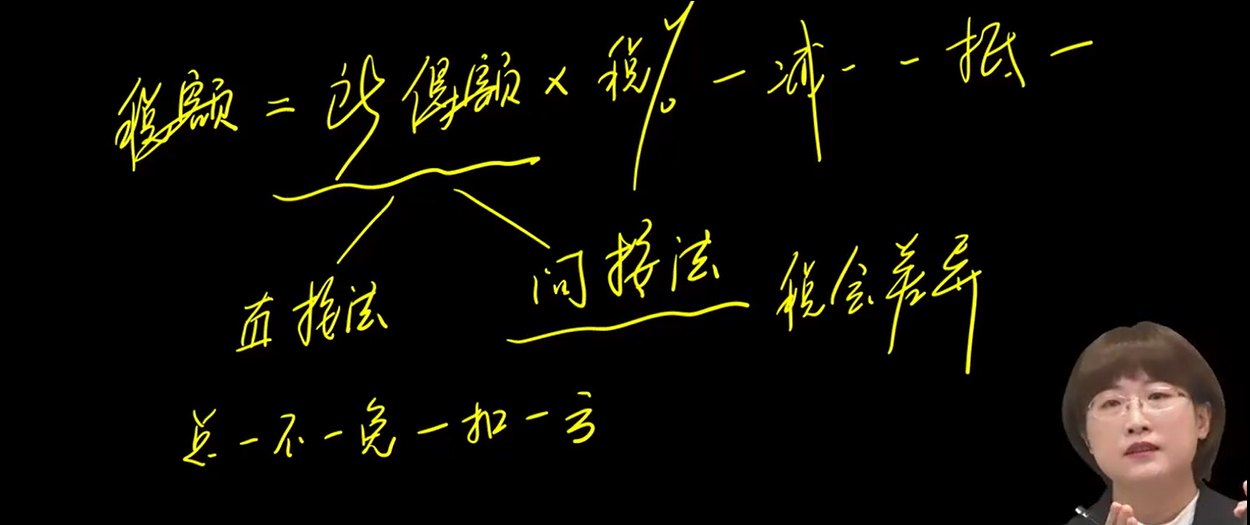 税额 = 所得额 × 税% - 减 - - 抵 -
直接法 间接法 税会差异
总 - 不 - 免 - 扣 - 亏